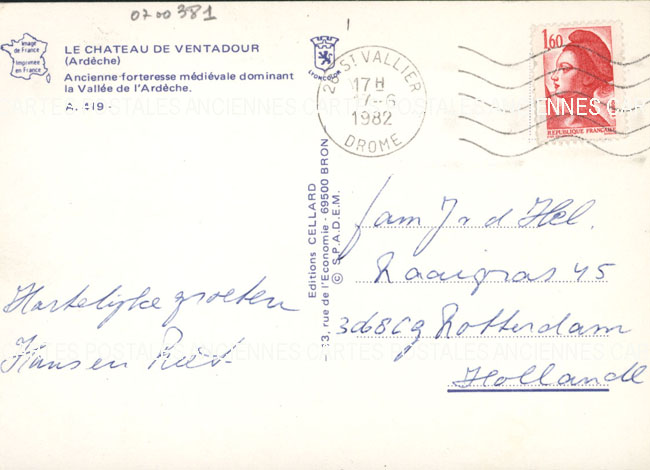 0700381
Image
de France
Imprimée
en France
LE CHATEAU DE VENTADOUR
(Ardèche)
Ancienne forteresse médiévale dominant
la Vallée de l'Ardèche.
A. 419 -
LYONCOLOR
26 ST VALLIER
17 H
17-6
1982
DROME
1,60
REPUBLIQUE FRANÇAISE
CARTES POSTALES ANCIENNES CARTES POSTALES ANCIENNES
Editions CELLARD
13, rue de l'Economie - 69500 BRON
© S.P.A.D.E.M.
Hartelijke groeten
Hans en Riet
fam J v d Hel.
45
Rotterdam
Hollande
CARTES POSTALES ANCIENNES CARTES POSTALES ANCIENNES